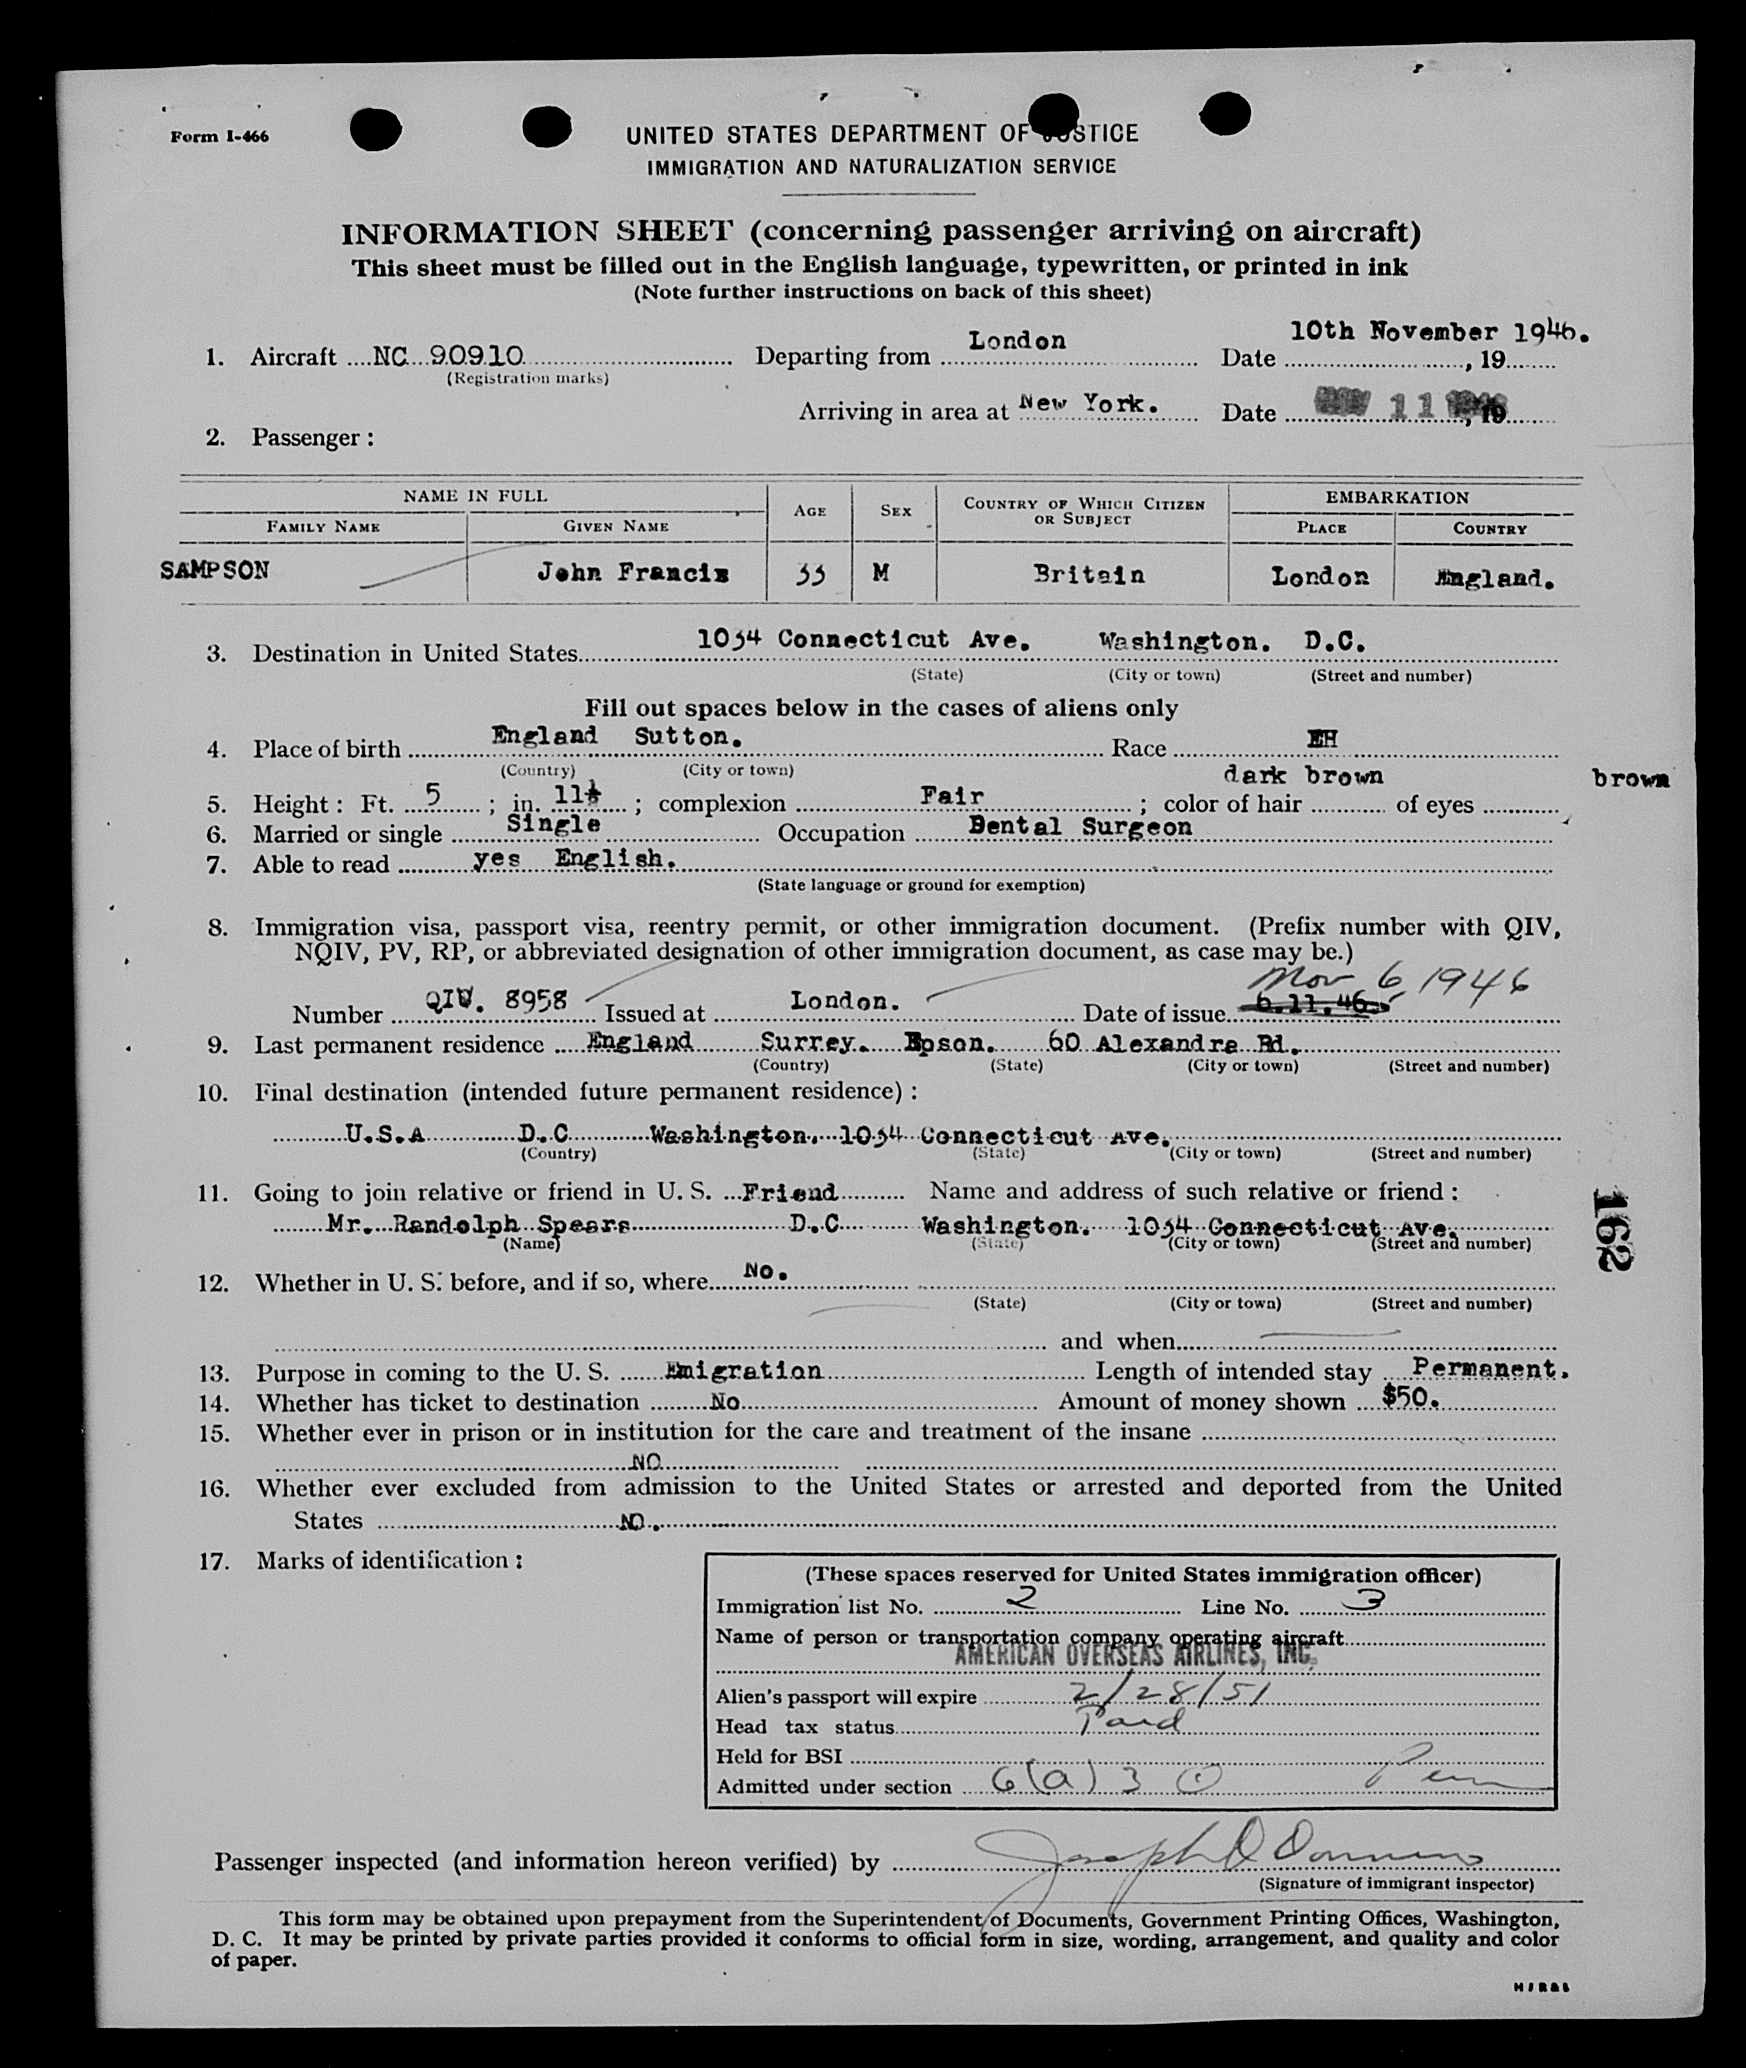 Form I-466
UNITED STATES DEPARTMENT OF JUSTICE
IMMIGRATION AND NATURALIZATION SERVICE
INFORMATION SHEET (concerning passenger arriving on aircraft)
This sheet must be filled out in the English language, typewritten, or printed in ink
(Note further instructions on back of this sheet)
1. Aircraft NC 90910 Departing from London Date 10th November 1946. , 19
(Registration marks)
Arriving in area at New York. Date NOV 11 1946 , 19
2. Passenger :
NAME IN FULL AGE SEX COUNTRY OF WHICH CITIZEN OR SUBJECT EMBARKATION
FAMILY NAME GIVEN NAME PLACE COUNTRY
SAMPSON John Francis 33 M Britain London England.
3. Destination in United States 1034 Connecticut Ave. Washington. D.C.
(State) (City or town) (Street and number)
Fill out spaces below in the cases of aliens only
4. Place of birth England Sutton. Race EH
(Country) (City or town)
5. Height : Ft. 5 ; in. 11½ ; complexion Fair ; color of hair dark brown of eyes brown
6. Married or single Single Occupation Dental Surgeon
7. Able to read yes English.
(State language or ground for exemption)
8. Immigration visa, passport visa, reentry permit, or other immigration document. (Prefix number with QIV,
NQIV, PV, RP, or abbreviated designation of other immigration document, as case may be.)
Nov 6, 1946
Number QIV. 8958 Issued at London. Date of issue 6.11.46
9. Last permanent residence England Surrey. Epson. 60 Alexandra Rd.
(Country) (State) (City or town) (Street and number)
10. Final destination (intended future permanent residence) :
U.S.A D.C Washington. 1034 Connecticut Ave.
(Country) (State) (City or town) (Street and number)
11. Going to join relative or friend in U. S. Friend Name and address of such relative or friend :
Mr. Randolph Spears D.C Washington. 1034 Connecticut Ave.
(Name) (State) (City or town) (Street and number)
162
12. Whether in U. S. before, and if so, where No.
(State) (City or town) (Street and number)
and when
13. Purpose in coming to the U. S. Emigration Length of intended stay Permanent.
14. Whether has ticket to destination No Amount of money shown $50.
15. Whether ever in prison or in institution for the care and treatment of the insane
NO
16. Whether ever excluded from admission to the United States or arrested and deported from the United
States NO.
17. Marks of identification :
(These spaces reserved for United States immigration officer)
Immigration list No. 2 Line No. 3
Name of person or transportation company operating aircraft
AMERICAN OVERSEAS AIRLINES, INC.
Alien's passport will expire 2/28/51
Head tax status Paid
Held for BSI
Admitted under section 6(a)3 Perm
Passenger inspected (and information hereon verified) by Joseph
(Signature of immigrant inspector)
This form may be obtained upon prepayment from the Superintendent of Documents, Government Printing Offices, Washington,
D. C. It may be printed by private parties provided it conforms to official form in size, wording, arrangement, and quality and color
of paper.